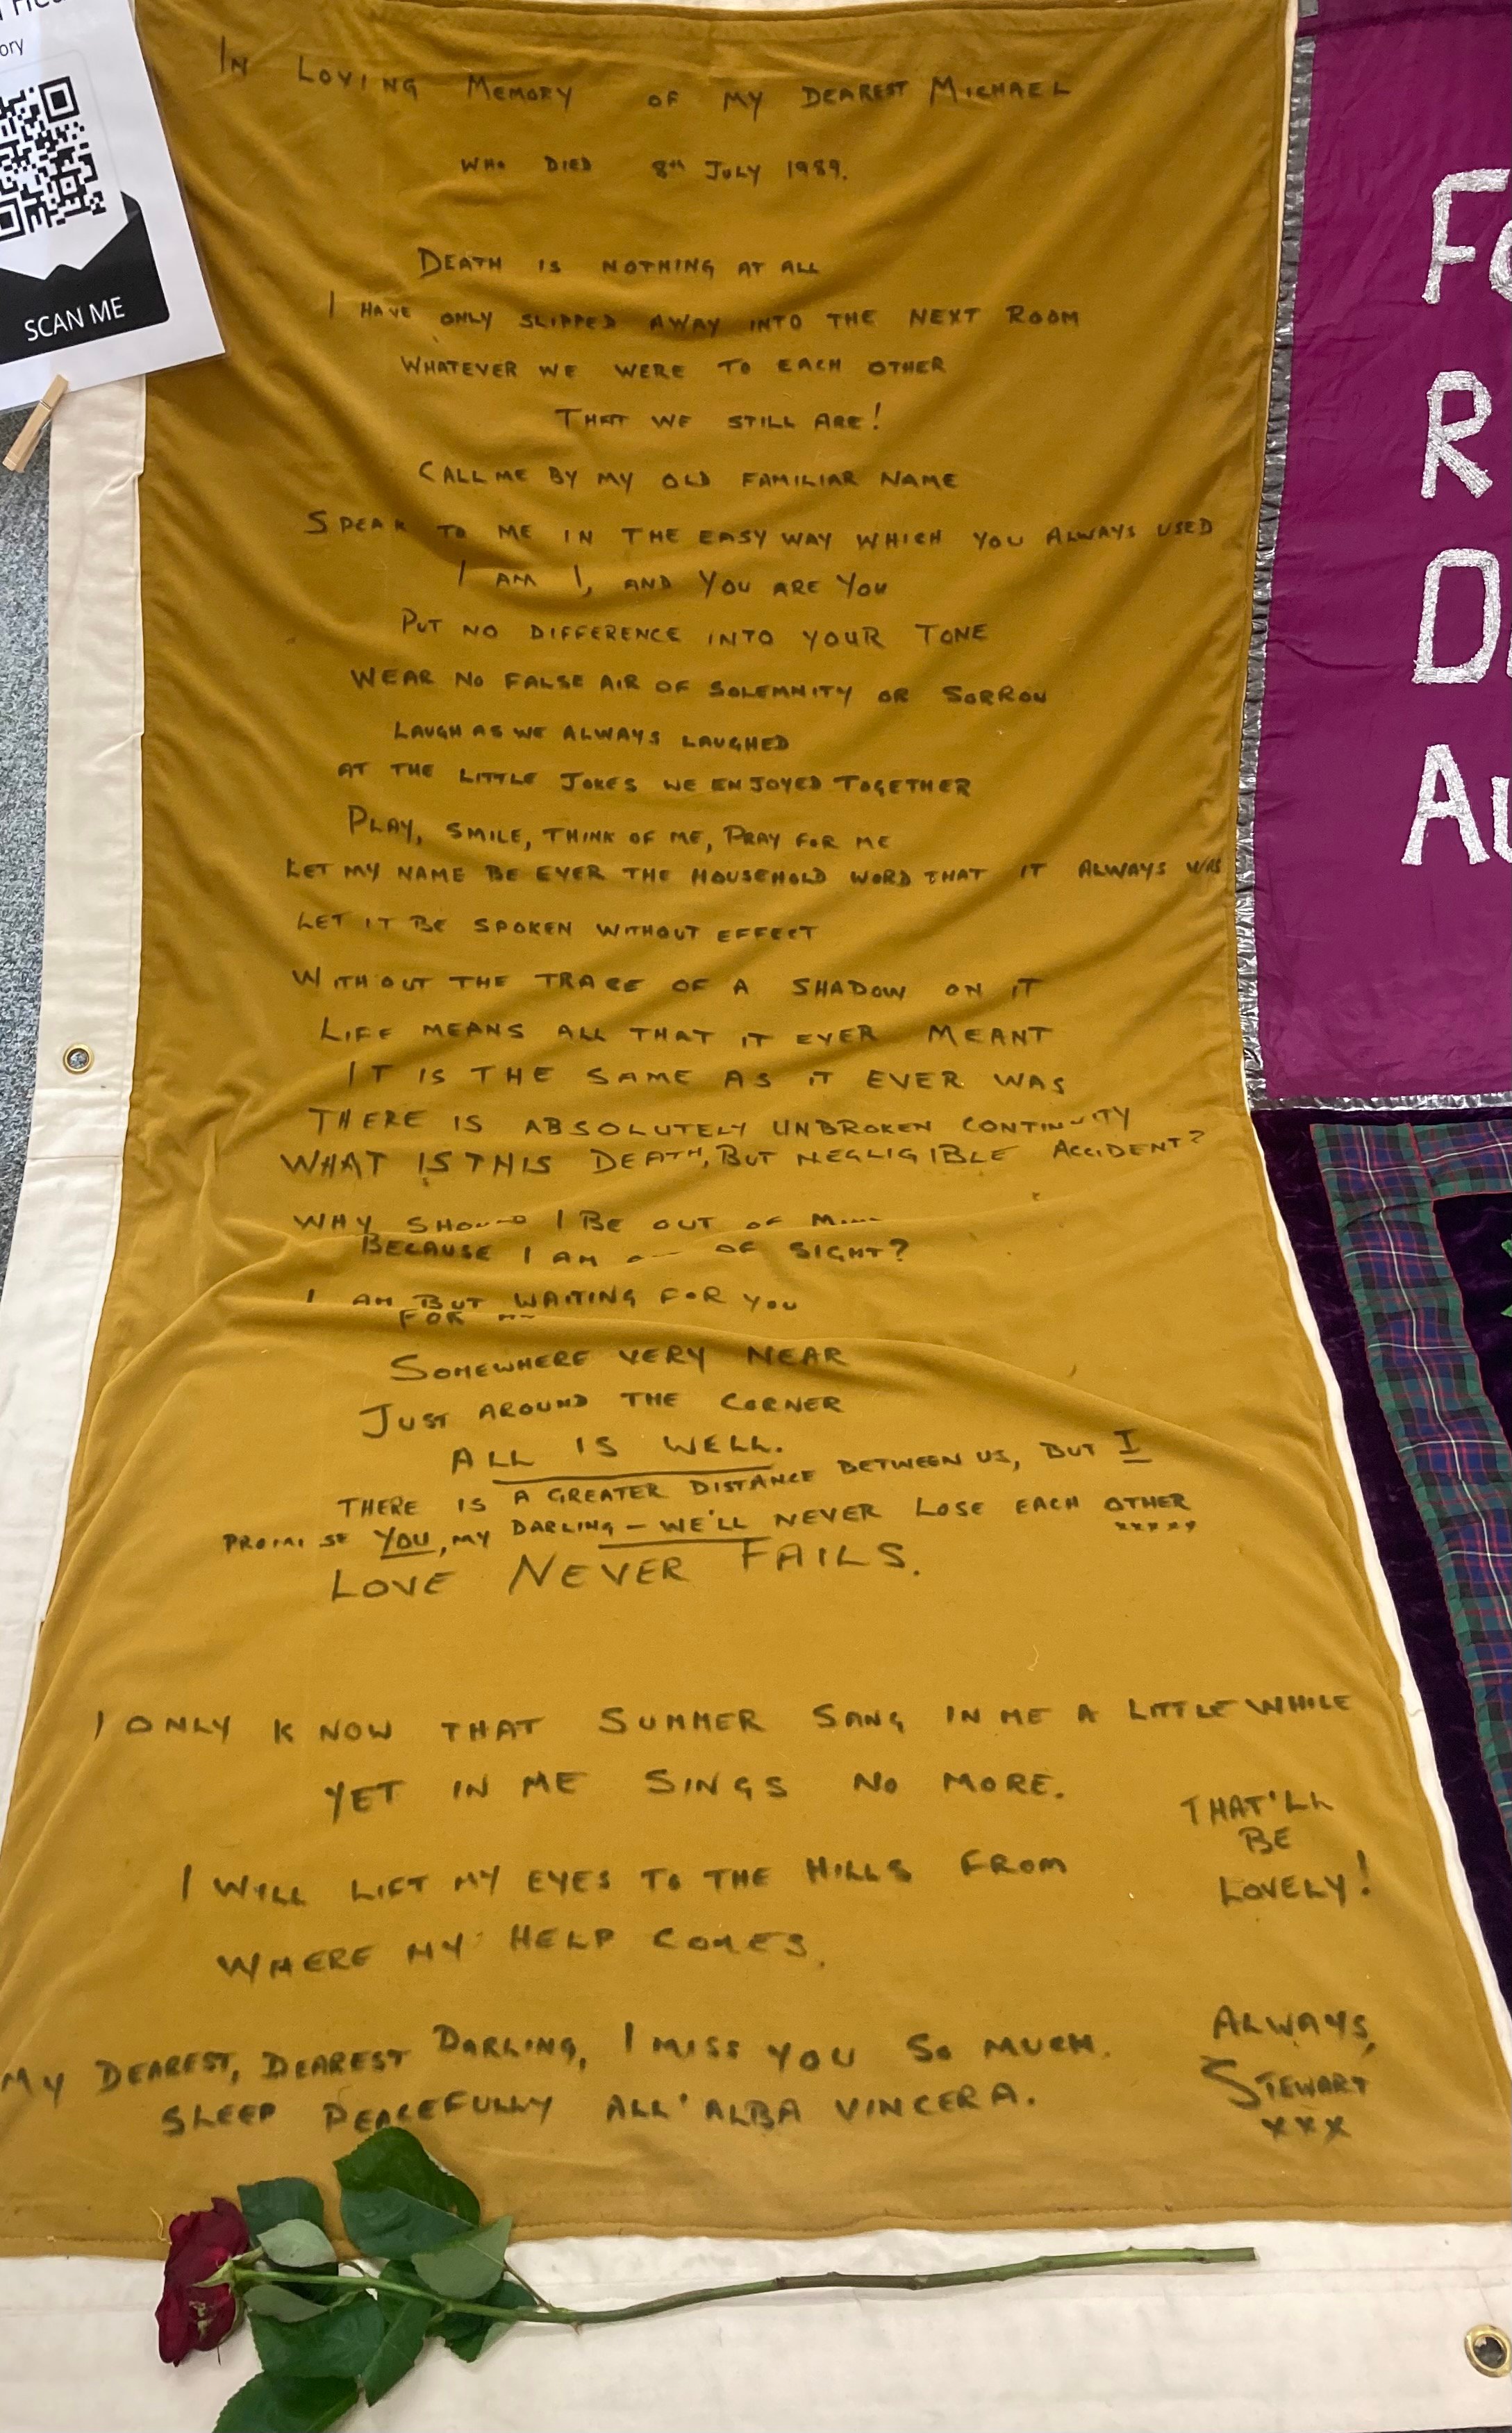 ory
SCAN ME
IN LOVING MEMORY OF MY DEAREST MICHAEL
WHO DIED 8TH JULY 1989.
DEATH IS NOTHING AT ALL
I HAVE ONLY SLIPPED AWAY INTO THE NEXT ROOM
WHATEVER WE WERE TO EACH OTHER
THAT WE STILL ARE!
CALL ME BY MY OLD FAMILIAR NAME
SPEAK TO ME IN THE EASY WAY WHICH YOU ALWAYS USED
I AM I, AND YOU ARE YOU
PUT NO DIFFERENCE INTO YOUR TONE
WEAR NO FALSE AIR OF SOLEMNITY OR SORROW
LAUGH AS WE ALWAYS LAUGHED
AT THE LITTLE JOKES WE ENJOYED TOGETHER
PLAY, SMILE, THINK OF ME, PRAY FOR ME
LET MY NAME BE EVER THE HOUSEHOLD WORD THAT IT ALWAYS WAS
LET IT BE SPOKEN WITHOUT EFFECT
WITHOUT THE TRACE OF A SHADOW ON IT
LIFE MEANS ALL THAT IT EVER MEANT
IT IS THE SAME AS IT EVER WAS
THERE IS ABSOLUTELY UNBROKEN CONTINUITY
WHAT IS THIS DEATH, BUT NEGLIGIBLE ACCIDENT?
WHY SHOULD I BE OUT OF
BECAUSE I AM OF SIGHT?
I AM BUT WAITING FOR YOU
FOR
SOMEWHERE VERY NEAR
JUST AROUND THE CORNER
ALL IS WELL.
THERE IS A GREATER DISTANCE BETWEEN US, BUT I
PROMISE YOU, MY DARLING – WE'LL NEVER LOSE EACH OTHER
xxxxx
LOVE NEVER FAILS.
I ONLY KNOW THAT SUMMER SANG IN ME A LITTLE WHILE
YET IN ME SINGS NO MORE.
THAT'LL
BE
LOVELY!
I WILL LIFT MY EYES TO THE HILLS FROM
WHERE MY HELP COMES.
MY DEAREST, DEAREST DARLING, I MISS YOU SO MUCH.
SLEEP PEACEFULLY ALL'ALBA VINCERA.
ALWAYS,
STEWART
xxx
R